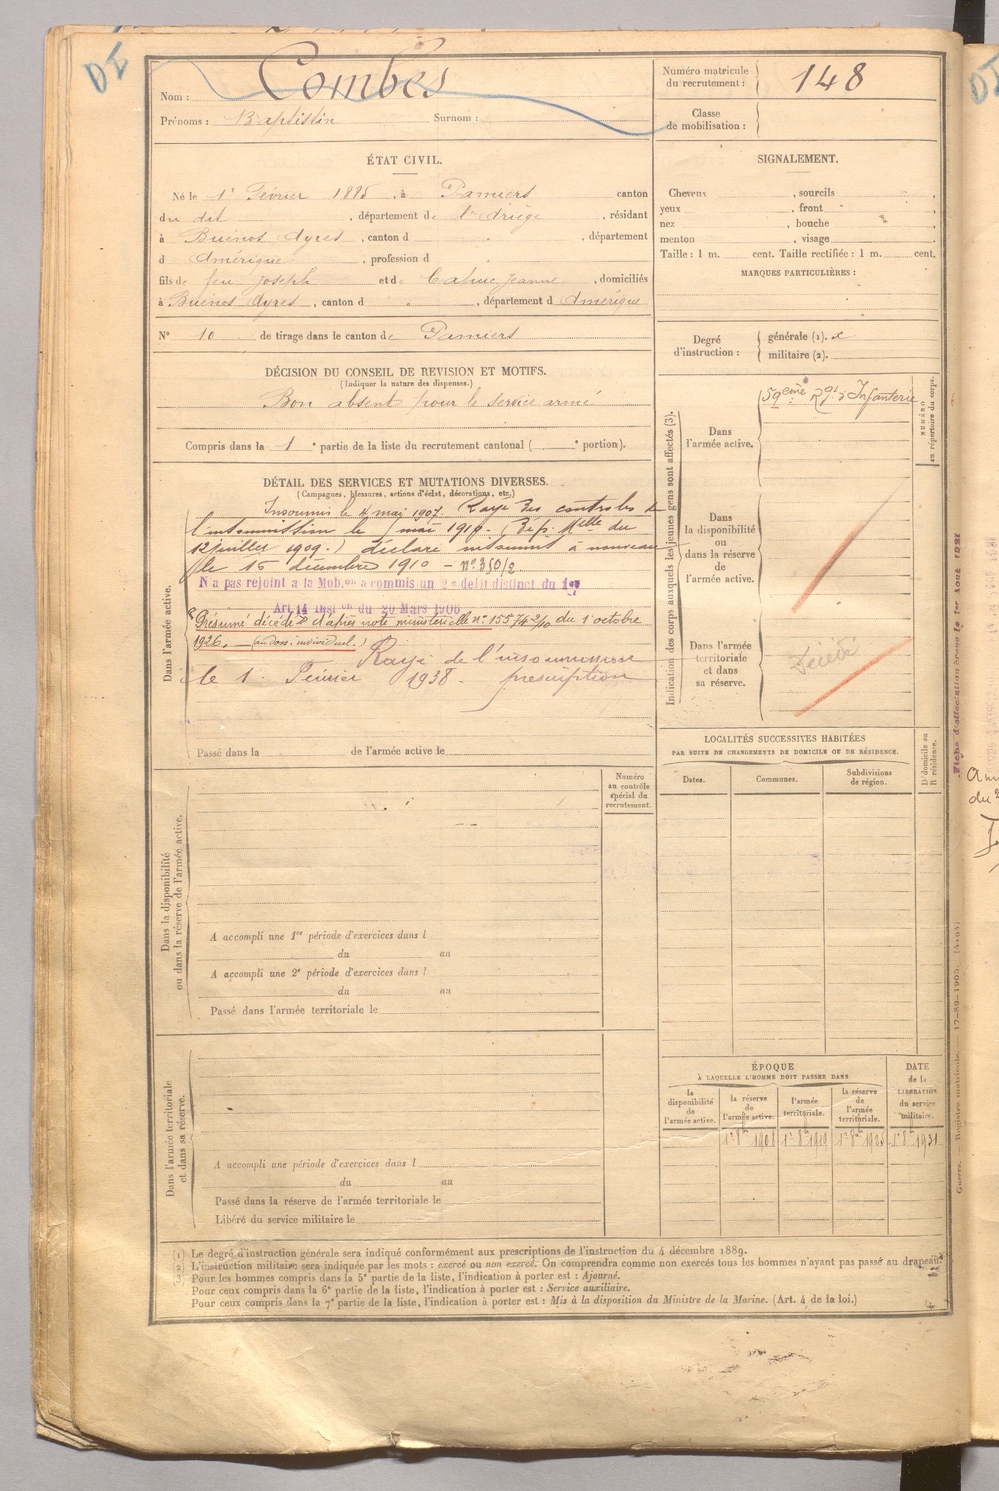 DI
Nom : Combes
Prénoms : Baptistin Surnom :
Numéro matricule du recrutement : 148
Classe de mobilisation :
ÉTAT CIVIL.
Né le 1r Février 1885, à Pamiers canton
du dit, département de l'Ariège, résidant
à Buenos Ayres, canton d , département
d Amérique, profession d
fils de feu Joseph et de Jeanne, domiciliés
à Buenos Ayres, canton d " , département d Amérique
N° 10 de tirage dans le canton de Pamiers
DÉCISION DU CONSEIL DE REVISION ET MOTIFS.
(Indiquer la nature des dispenses.)
Bon absent pour le service armé
Compris dans la 1e partie de la liste du recrutement cantonal ( e portion).
SIGNALEMENT.
Cheveux , sourcils ,
yeux , front ,
nez , bouche ,
menton , visage
Taille : 1 m. cent. Taille rectifiée : 1 m. cent.
MARQUES PARTICULIÈRES :
Degré d'instruction :
générale (1).
militaire (2).
DÉTAIL DES SERVICES ET MUTATIONS DIVERSES.
(Campagnes, blessures, actions d'éclat, décorations, etc.)
Dans l'armée active.
Insoumis le 4 mai 1907. Rayé des controles de
l'insoumission le mai 1910. (Dép. Mlle du
12 juillet 1909.) déclaré insoumis à nouveau
le 15 décembre 1910 - n° 350/2
N'a pas rejoint a la Mob.on a commis un 2e délit distinct du 1er
Art 14 Inst.on du 20 Mars 1906
Présumé décédé d'après note ministérielle n° 15574 2/10 du 1 octobre
1926. (au doss. individuel.)
Rayé de l'insoumission
le 1r Février 1938. prescription
Passé dans la de l'armée active le
Indication des corps auxquels les jeunes gens sont affectés (3).
NUMÉRO au répertoire du corps.
Dans l'armée active.
59eme Rgt d'Infanterie
Dans la disponibilité ou dans la réserve de l'armée active.
Dans l'armée territoriale et dans sa réserve.
Décédé
LOCALITÉS SUCCESSIVES HABITÉES
PAR SUITE DE CHANGEMENTS DE DOMICILE OU DE RÉSIDENCE.
Dates. Communes. Subdivisions de région. D domicile ou R résidence.
Dans la disponibilité ou dans la réserve de l'armée active.
Numéro au contrôle spécial du recrutement.
A accompli une 1re période d'exercices dans l
du au
A accompli une 2e période d'exercices dans l
du au
Passé dans l'armée territoriale le
Dans l'armée territoriale et dans sa réserve.
A accompli une période d'exercices dans l
du au
Passé dans la réserve de l'armée territoriale le
Libéré du service militaire le
ÉPOQUE
À LAQUELLE L'HOMME DOIT PASSER DANS
la disponibilité de l'armée active. la réserve de l'armée active. l'armée territoriale. la réserve de l'armée territoriale. DATE de la LIBÉRATION du service militaire.
1r 8bre 1908 1r 8bre 1919 1r 8bre 1925 1r 8bre 1931
(1) Le degré d'instruction générale sera indiqué conformément aux prescriptions de l'instruction du 4 décembre 1889.
(2) L'instruction militaire sera indiquée par les mots : exercé ou non exercé. On comprendra comme non exercés tous les hommes n'ayant pas passé au drapeau.
(3) Pour les hommes compris dans la 5e partie de la liste, l'indication à porter est : Ajourné.
Pour ceux compris dans la 6e partie de la liste, l'indication à porter est : Service auxiliaire.
Pour ceux compris dans la 7e partie de la liste, l'indication à porter est : Mis à la disposition du Ministre de la Marine. (Art. 4 de la loi.)
Guerre. — Registre matricule. — 17-89-1905.